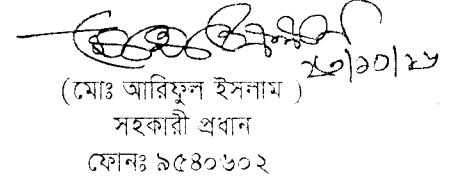 ২৩/১০/১৬
(মোঃ আরিফুল ইসলাম )
সহকারী প্রধান
ফোনঃ ৯৫৪০৬০২